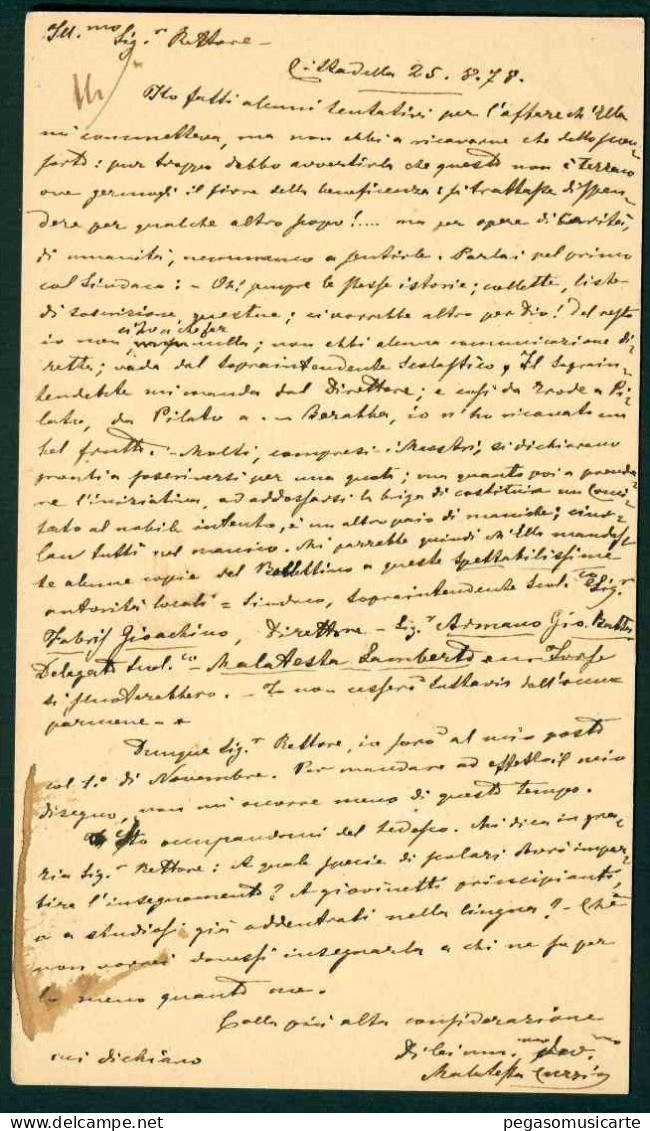 Ill.mo Sig.r Rettore –
Cittadella 25. 8. 78.
Ho fatti alcuni tentativi per l'affare ch'Ella
mi commetteva, ma non ebbi a ricavarne che dello scon-
forto: pur troppo debbo avvertirla che questo non è terreno
ove germogli il fiore della beneficenza: si trattasse di spen-
dere per qualche altro scopo!.... ma per opere di carità,
di umanità, nemmanco a sentirle. Parlai pel primo
col Sindaco: – Oh! sempre le stesse istorie; collette, liste
di soscrizione, questue; ci vorrebbe altro per Dio! Del resto
io non ci ho che far nulla; non ebbi alcuna comunicazione di-
retta; vada dal Sopraintendente Scolastico, Il Soprain-
tendente mi manda dal Direttore; e così da Erode a Pi-
lato, da Pilato a – Barabba, io n'ho ricavato un
bel frutto. – Molti, compresi i Maestri, si dichiarano
pronti a soscriversi per una quota; ma quanto poi a prende-
re l'iniziativa, ad addossarsi la briga di costituire un Comi-
tato al nobile intento, è un altro paio di maniche; ciur-
lan tutti nel manico. Mi parrebbe quindi ch'Ella mandas-
se alcune copie del Bollettino a queste spettabilissime
autorità locali = Sindaco, Sopraintendente Scol.co Sig.r
Fabris Gioachino, Direttore – Sig.r Armano Gio. Batta
Delegato Scol.co – Malatesta Lamberto e – Forse
si scuoterebbero. – Io non cesserò tuttavia dall'occu-
parmene –
Dunque Sig.r Rettore, io sarò al mio posto
col 1.o di Novembre. Per mandare ad effetto il mio
disegno, non mi occorre meno di questo tempo.
Sto occupandomi del tedesco. Mi dica in gra-
zia Sig.r Rettore: A quale specie di scolari dovrò impar-
tire l'insegnamento? A giovinetti principianti,
o a studiosi già addentrati nella lingua? – Chè
non vorrei dovessi insegnarla a chi ne sa per
lo meno quanto me.
Colla più alta considerazione
mi dichiaro
Di Lei um.mo dev.mo
Malatesta